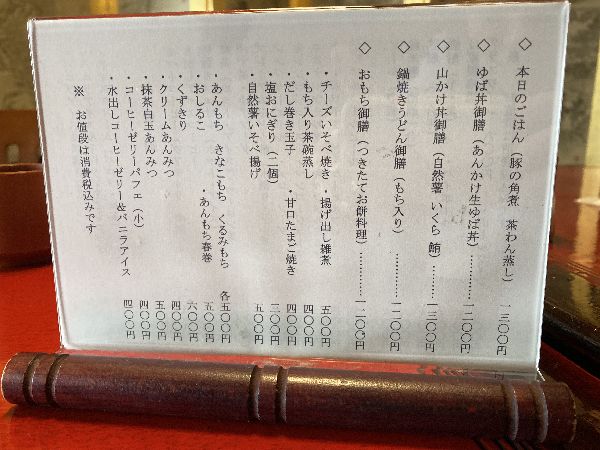 ◇ 本日のごはん（豚の角煮 茶わん蒸し） 一三〇〇円
◇ ゆば丼御膳（あんかけ生ゆば丼）………… 一二〇〇円
◇ 山かけ丼御膳（自然薯 いくら 鮪）………… 一三〇〇円
◇ 鍋焼きうどん御膳（もち入り）………… 一二〇〇円
◇ おもち御膳（つきたてお餅料理）………… 一二〇〇円
・チーズいそべ焼き ・揚げ出し雑煮 五〇〇円
・もち入り茶碗蒸し 四〇〇円
・だし巻き玉子 ・甘口たまご焼き 四〇〇円
・塩おにぎり（二個） 三〇〇円
・自然薯いそべ揚げ 五〇〇円
・あんもち きなこもち くるみもち 各五〇〇円
・おしるこ ・あんもち春巻 五〇〇円
・くずきり 六〇〇円
・クリームあんみつ 四〇〇円
・抹茶白玉あんみつ 五〇〇円
・コーヒーゼリーパフェ（小） 四〇〇円
・水出しコーヒーゼリー＆バニラアイス 四〇〇円
※ お値段は消費税込みです